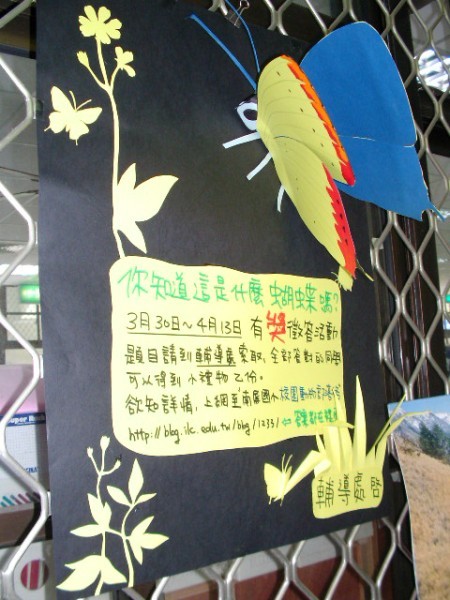 你知道這是什麼蝴蝶嗎?
3月30日~4月13日 有獎徵答活動
題目請到輔導處索取,全部答對的同學
可以得到小禮物乙份。
欲知詳情,上網至南屏國小校園動物部落格
http://blog.ilc.edu.tw/blog/1233/
輔導處啓
Super